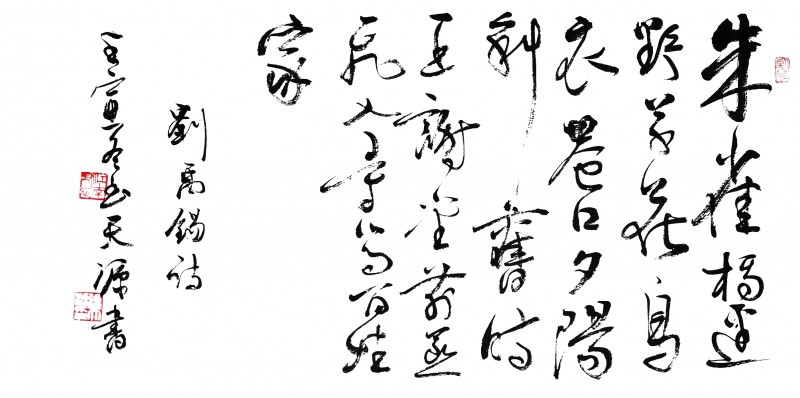 朱雀橋邊
野草花烏
衣巷口夕陽
斜舊時
王謝堂前燕
飛入尋常百姓
家
劉禹錫詩
壬寅冬天源書